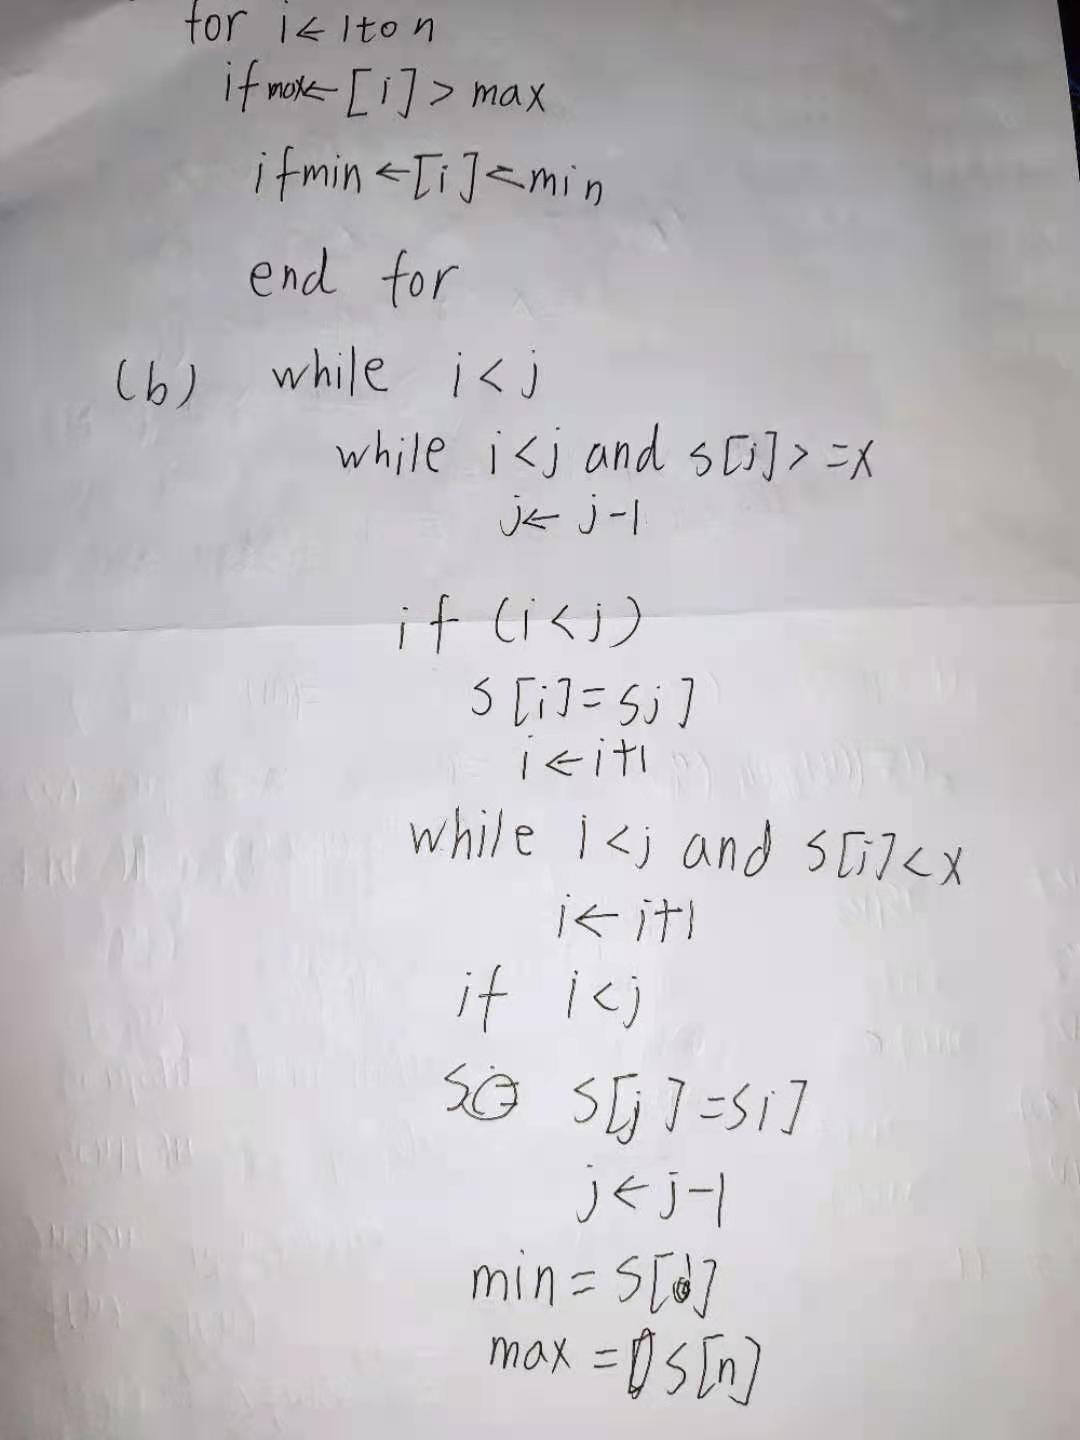 for i ← 1 to n
if max ← [i] > max
if min ← [i] < min
end for
(b) while i < j
while i < j and s[j] > = x
j ← j - 1
if (i < j)
s[i] = sj]
i ← i + 1
while i < j and s[i] < x
i ← i + 1
if i < j
s[j] = si]
j ← j - 1
min = s[ ]
max = s[n]